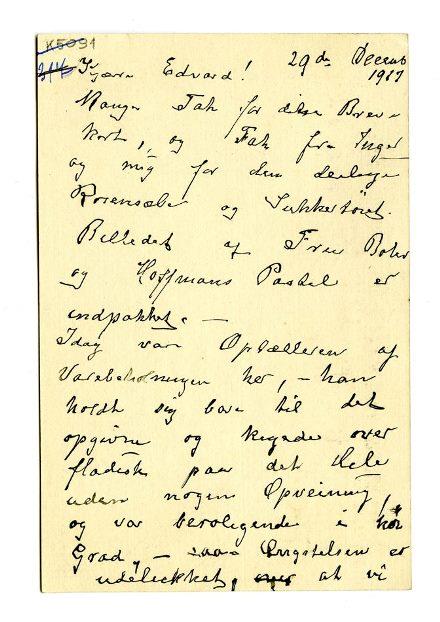 K5091
Kjære Edvard! 29de Decemb
1917
Mange Tak for dine Breve
kort, og Tak fra Inger
og mig for den deilige
Rosensæbe og Sukkertöiet.
Billedet af Frue Bohr
og Hoffmans Pastel er
indpakket. —
Idag var Optælleren af
Varebeholdningen her, — han
holdt sig bare til det
opgivne og kigede over
fladisk paa det Hele
uden nogen Opveining,
og var beroligende i höi
Grad, — saa Ængstelsen er
udelukket, at vi